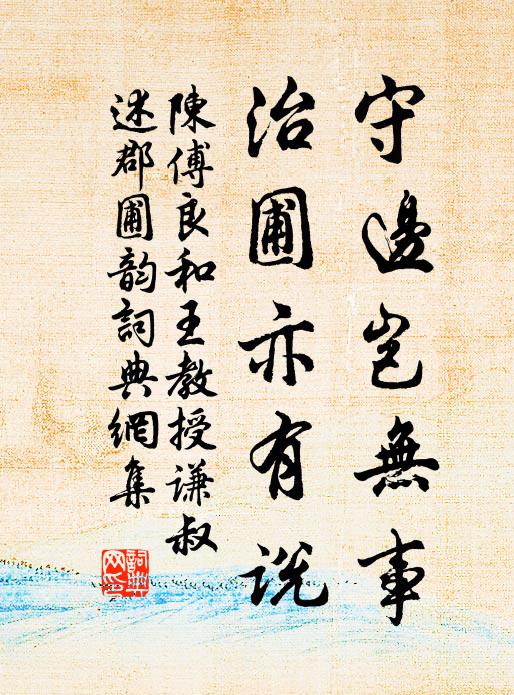 守邊豈無事
治圃亦有説
陳傅良和王教授謙叔
述郡圃韵詞典網集